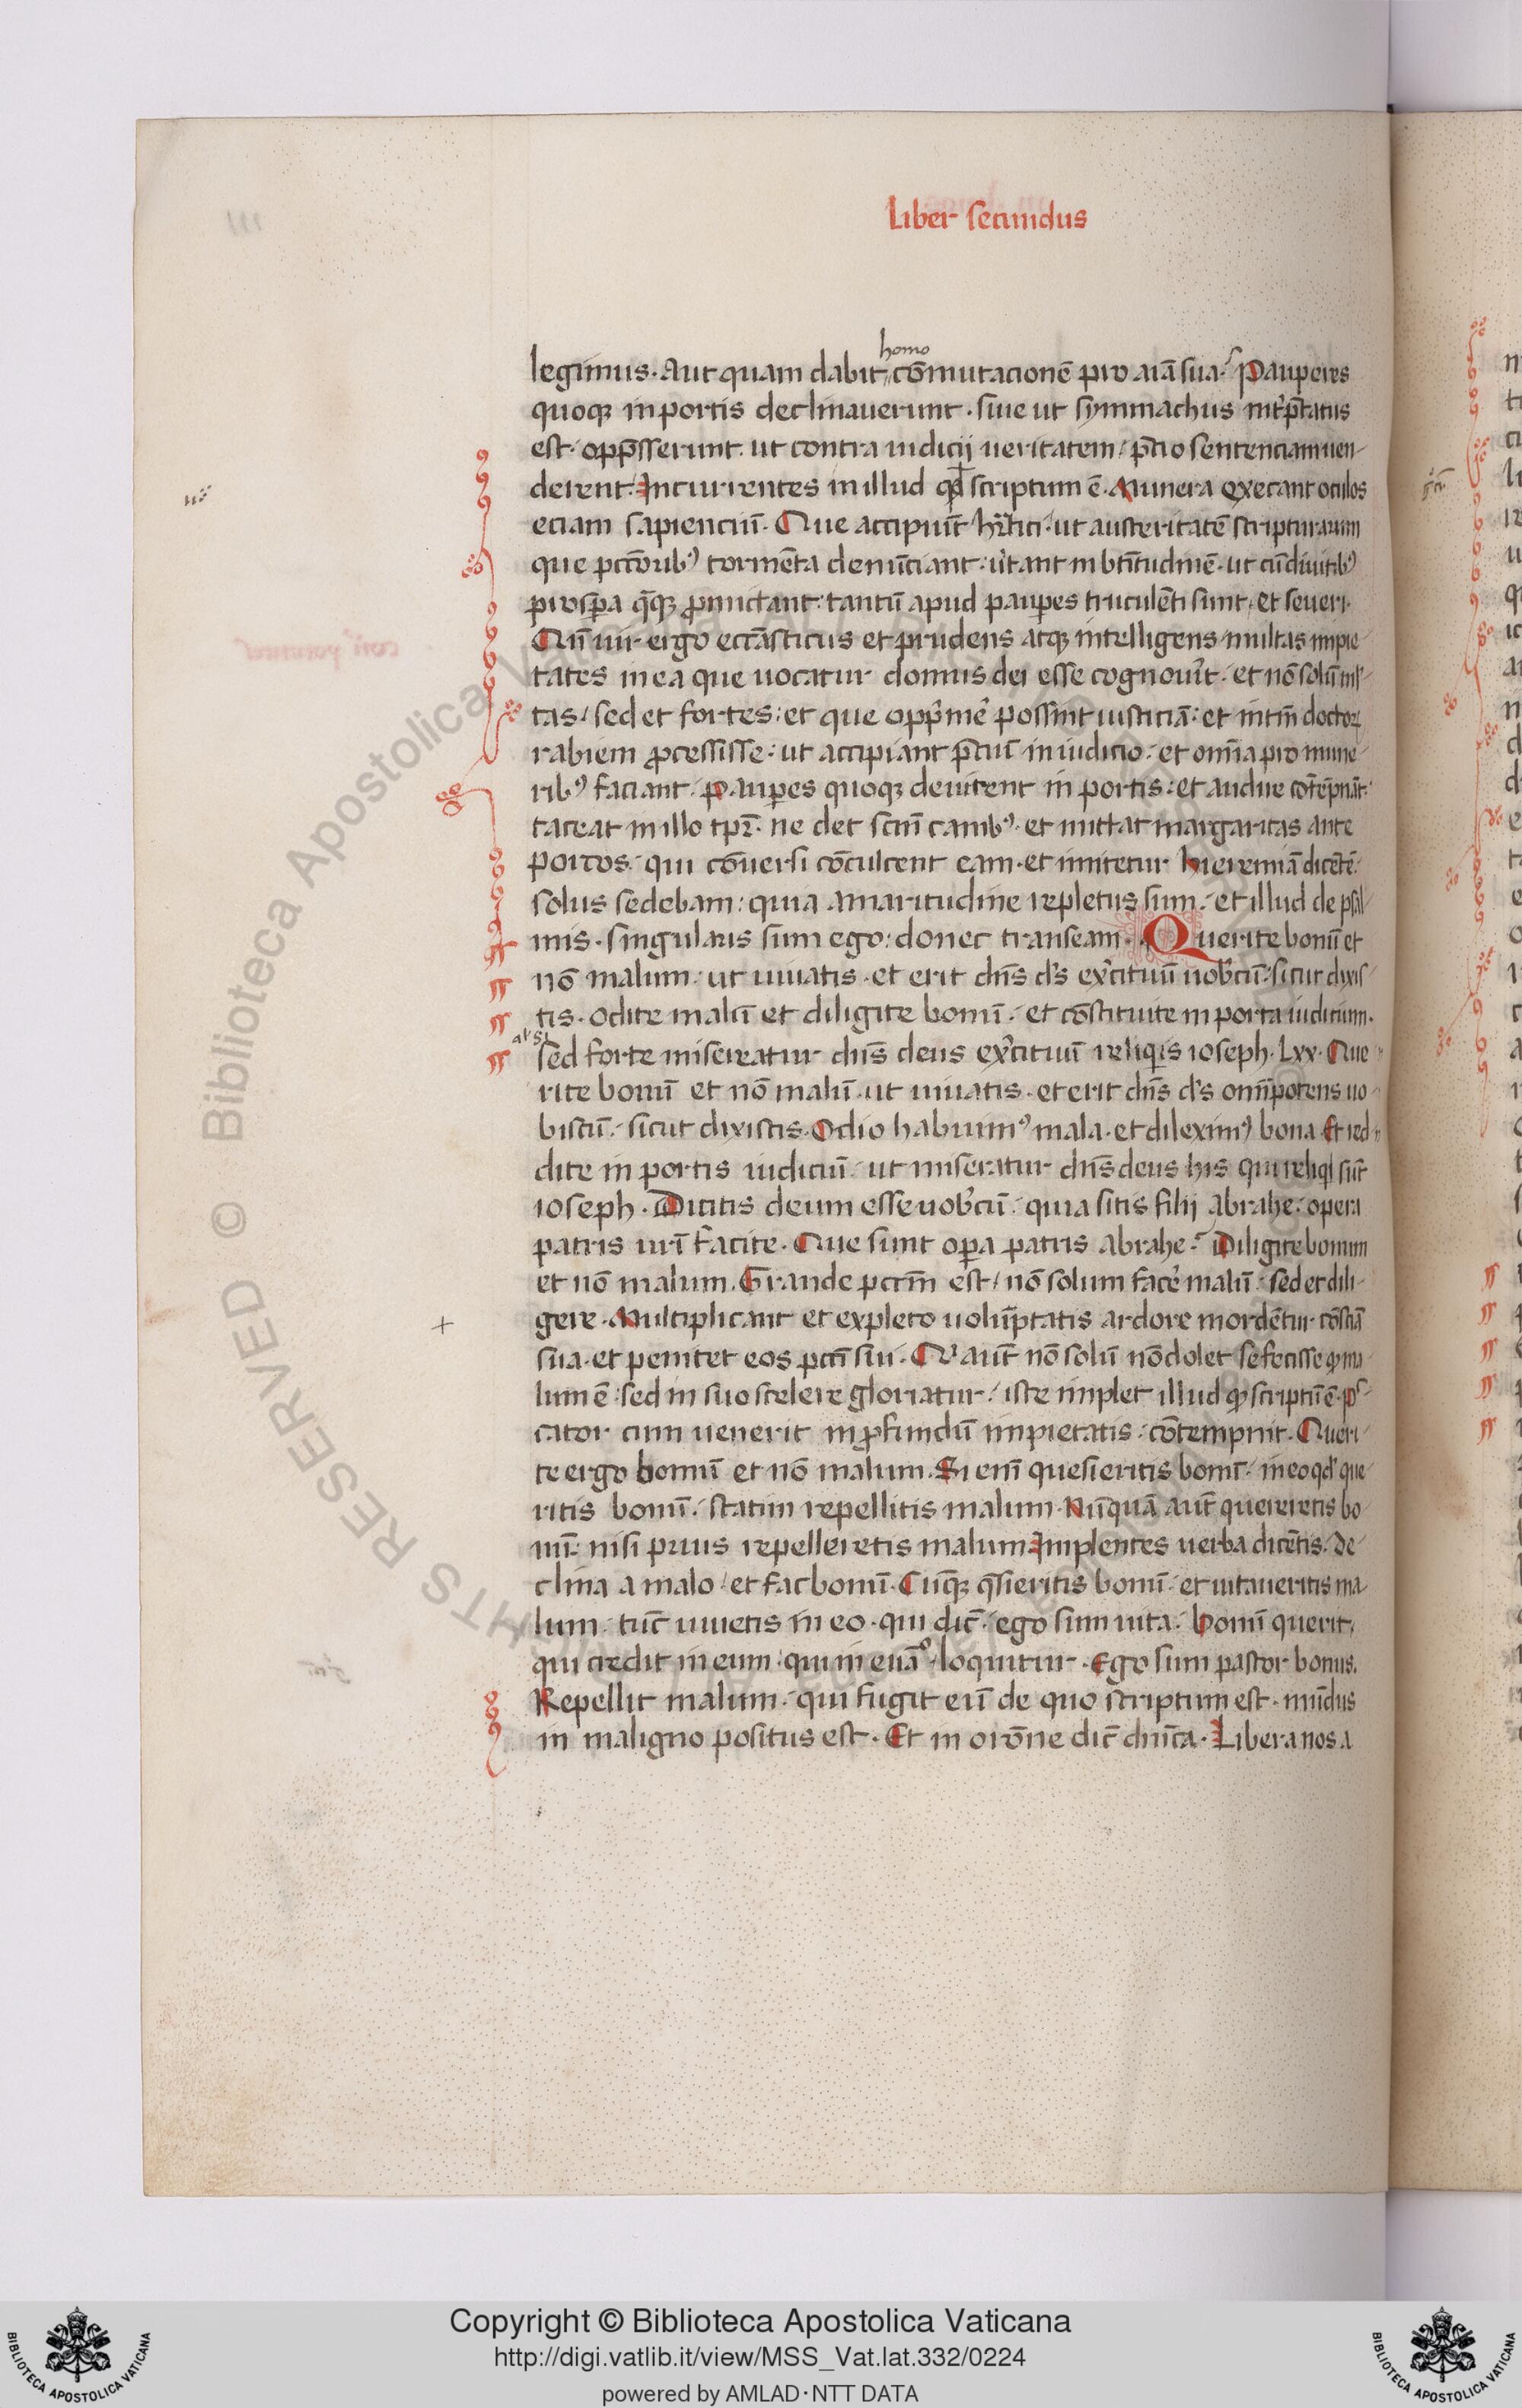 Liber secundus
homo
legimus. Aut quam dabit cõmutacionẽ pro aĩa sua? Pauperes
quoqꝫ in portis declinauerunt. siue ut symmachus int̾p̃tatus
est. opp̃sserunt. ut contra iudicij ueritatem p̃cio sentenciam uen-
derent. Incurrentes in illud qđ scriptum ẽ. Munera excecant oculos
eciam sapienciũ. Que accipiũt hr̃tici. ut austeritatẽ scripturarum
que pctõribꝰ tormẽta denũciant. ũtant in btĩtudinẽ. ut cũ diuitibꝰ
prosꝑa q̃qꝫ ꝓmictant. tantũ apud pauꝑes truculẽti sunt, et seueri.
Cũ uir ergo eccãsticus et prudens atqꝫ intelligens multas impie-
tates in ea que uocatur domus dei esse cognou̾it. et nõ solũ ml̾-
tas, sed et fortes. et que opp̾me̾ possint iusticiã. et intm̃ doctoꝝ
rabiem ꝓcessisse. ut accipiant p̃ciũ in iudicio. et omĩa pro mune-
ribꝰ faciant. Pauꝑes quoqꝫ deuitent in portis. et audire cõtẽpnãt.
taceat in illo tpr̃. ne det scm̃ canibꝰ. et mittat margaritas ante
porcos. qui cõuersi cõculcent eam. et imitetur hieremiã dicẽtẽ.
solus sedebam. quia amaritudine repletus sum. et illud de psal-
mis. singularis sum ego. donec transeam. Querite bonũ et
nõ malum. ut uiuatis. et erit dñs ds̾ ex̾cituũ uob̾cũ. sicut dixis-
tis. Odite malũ et diligite bonũ. et cõstituite in porta iudicium.
al' si
sed forte misereatur dñs deus ex̾cituũ reliqiis ioseph. Lxx. Que-
rite bonũ et nõ malũ. ut uiuatis. et erit dñs ds̾ omĩpotens uo-
biscũ. sicut dixistis. Odio habuimꝰ mala. et dileximꝰ bona Et red-
dite in portis iudiciũ. ut miseratur dñs deus his qui reliqi sũt
ioseph. Dicitis deum esse uob̾cũ. quia sitis filij abrahe. opera
patris ur̃i facite. Que sunt oꝑa patris abrahe? Diligite bonum
et nõ malum. Grande pctm̃ est, nõ solum face̾ malũ. sed et dili-
gere. Multiplicant et expleto uolũptatis ardore mordẽtur cõsciã
sua. et penitet eos pctĩ sui. Qui aũt nõ solũ nõ dolet se fecisse qꝫ ma-
lum ẽ. sed in suo scelere gloriatur, iste implet illud qꝫ scriptũ ẽ. pec-
cator cum uenerit in ꝓfundũ impietatis. cõtempnit. Queri-
te ergo bonũ et nõ malum. Si eni̾ quesieritis bonũ. in eo qd' que-
ritis bonũ. statim repellitis malum. Nũquã aũt quereretis bo-
nũ. nisi prius repelleretis malum. Implentes uerba dicẽtis. De-
clina a malo. et fac bonũ. Cũqꝫ q̃sieritis bonũ. et uitaueritis ma-
lum. tũc uiuetis in eo. qui dic̃. ego sum uita. Bonũ querit,
qui credit in eum. qui in euãᵒ. loquitur. Ego sum pastor bonus.
Repellit malum. qui fugit eũ de quo scriptum est. mũdus
in maligno positus est. Et in orõne dic̃ dnĩca. Libera nos a
Copyright © Biblioteca Apostolica Vaticana
http://digi.vatlib.it/view/MSS_Vat.lat.332/0224
powered by AMLAD·NTT DATA